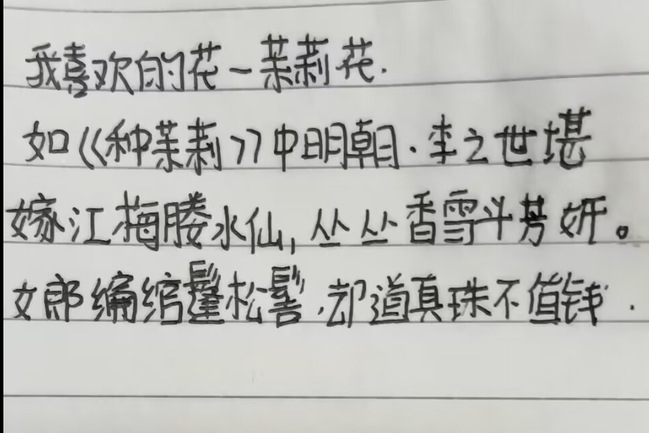 我喜欢的花一茉莉花.
如《种茉莉》中明朝.李之世堪
嫁江梅媵水仙,丛丛香雪斗芳妍。
文郎编绾鬔松髻.却道真珠不值钱.